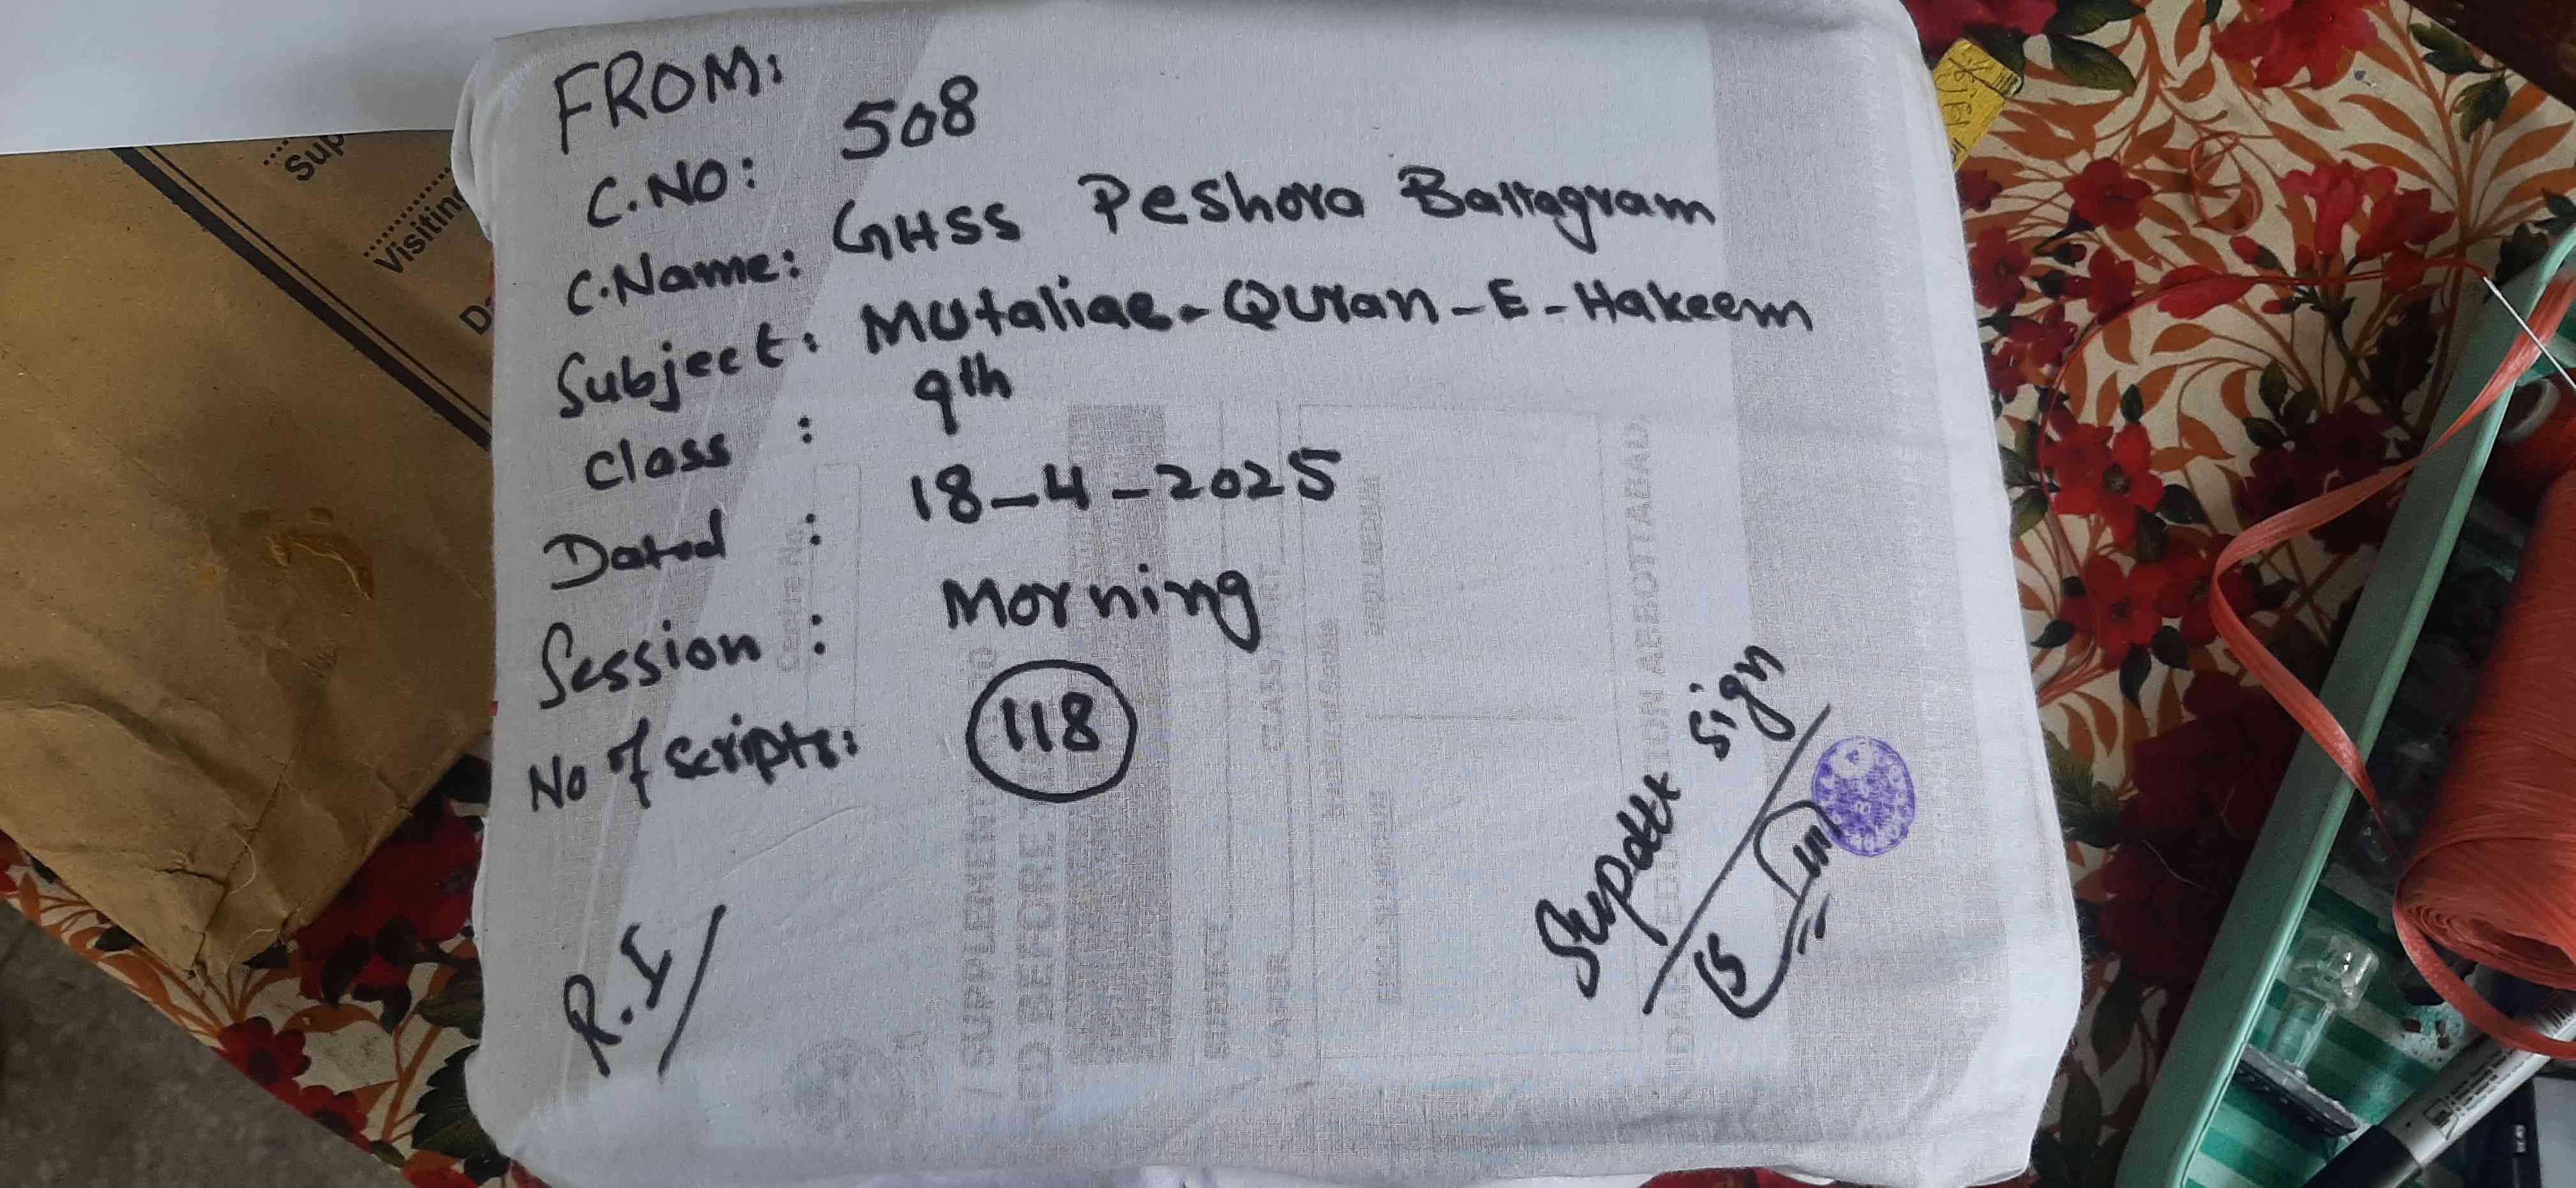 FROM:
C.NO: 508
C.Name: GHSS Peshora Battagram
Subject: Mutaliae-Quran-E-Hakeem
class : 9th
Dated : 18-4-2025
Session : Morning
No of scripts: 118
R.I
Supdtt sign
Sup
Visiting
SUBJECT